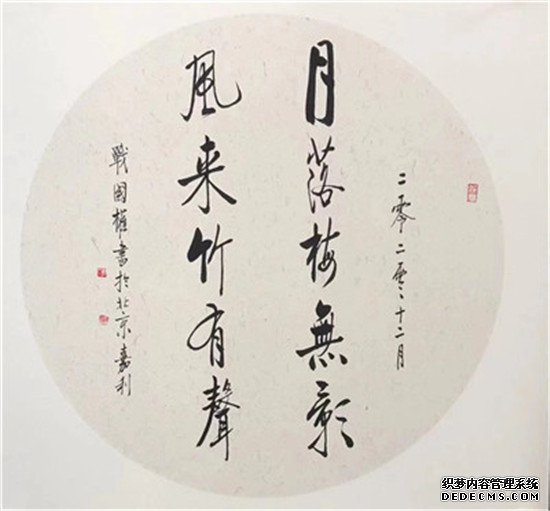 二零二零、十二月
月落梅無影
風来竹有聲
戰国權書於北京嘉利
织梦内容管理系统
DEDECMS.COM